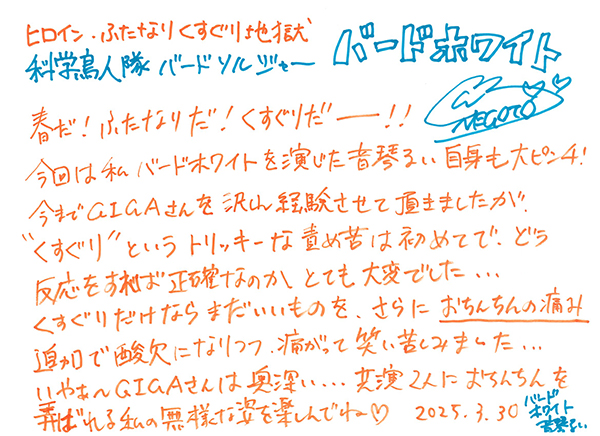 ヒロイン・ふたなりくすぐり地獄
科学鳥人隊 バードソルジャー
バードホワイト
春だ!ふたなりだ!くすぐりだー!!
NEGOTO
今回は私 バードホワイトを演じた音琴るい自身も大ピンチ!
今までGIGAさんを沢山経験させて頂きましたが、
"くすぐり"というトリッキーな責め苦は初めてで、どう
反応をすれば正確なのか、とても大変でした...
くすぐりだけならまだいいものを、さらにおちんちんの痛み
追加で酸欠になりつつ、痛がって笑い苦しみました...
いやぁ〜GIGAさんは奥深い... 共演2人におちんちんを
弄ばれる私の無様な姿を楽しんでね♡ 2025.3.30
バード
ホワイト
音琴るい